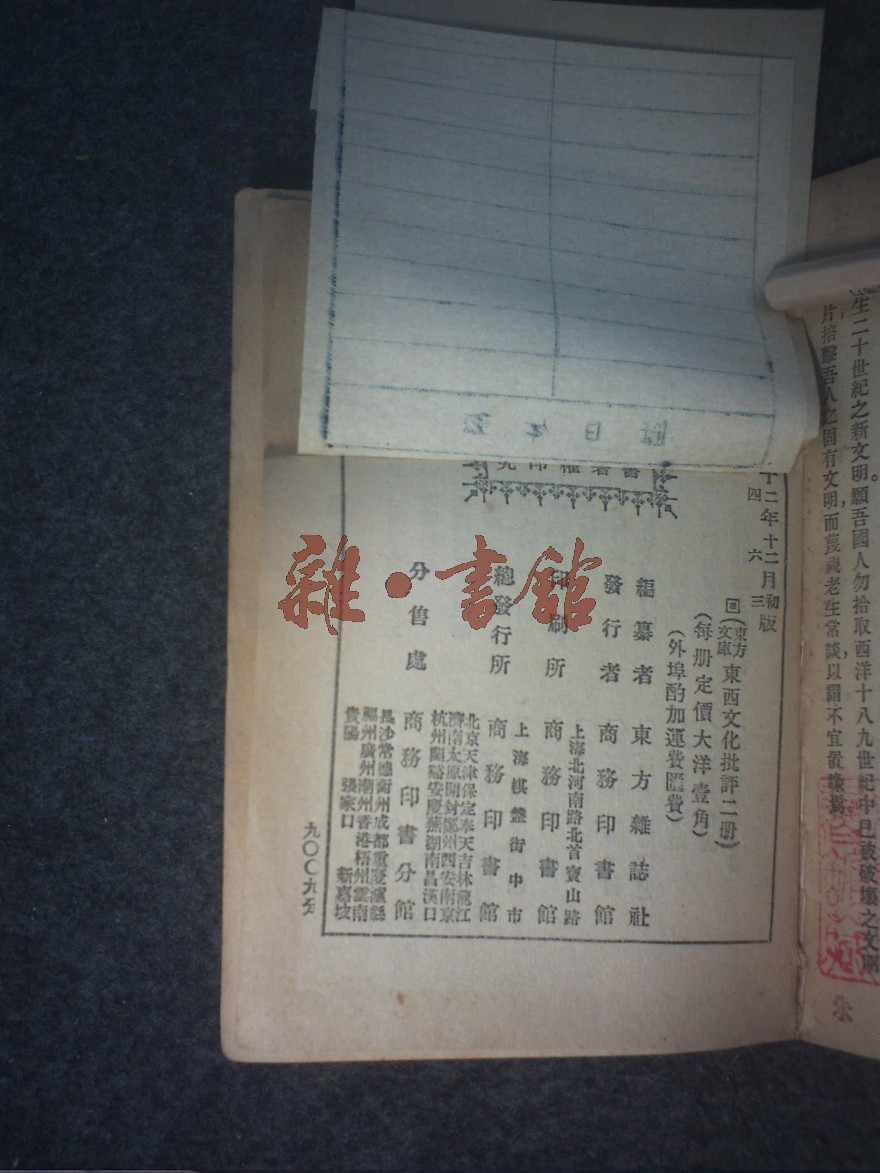 生二十世紀之新文明。願吾國人勿拾取西洋十八九世紀中已被破壞之文明
片掊擊吾人之固有文明，而蔑視老生常談，以謂不宜置
十二年十二月初版
四 六 三
回(東方文庫)東西文化批評二册)
(每册定價大洋壹角)
(外埠酌加運費匯費)
編纂者 東方雜誌社
發行者 商務印書館
上海北河南路北首寶山路
印刷所 商務印書館
上海棋盤街中市
總發行所 商務印書館
北京天津保定奉天吉林龍江
濟南太原開封鄭州西安南京
杭州蘭谿安慶蕪湖南昌漢口
分售處 商務印書分館
長沙常德衡州成都重慶瀘縣
福州廣州潮州香港梧州雲南
貴陽 張家口 新嘉坡
九〇〇九分
期日
雜·書館